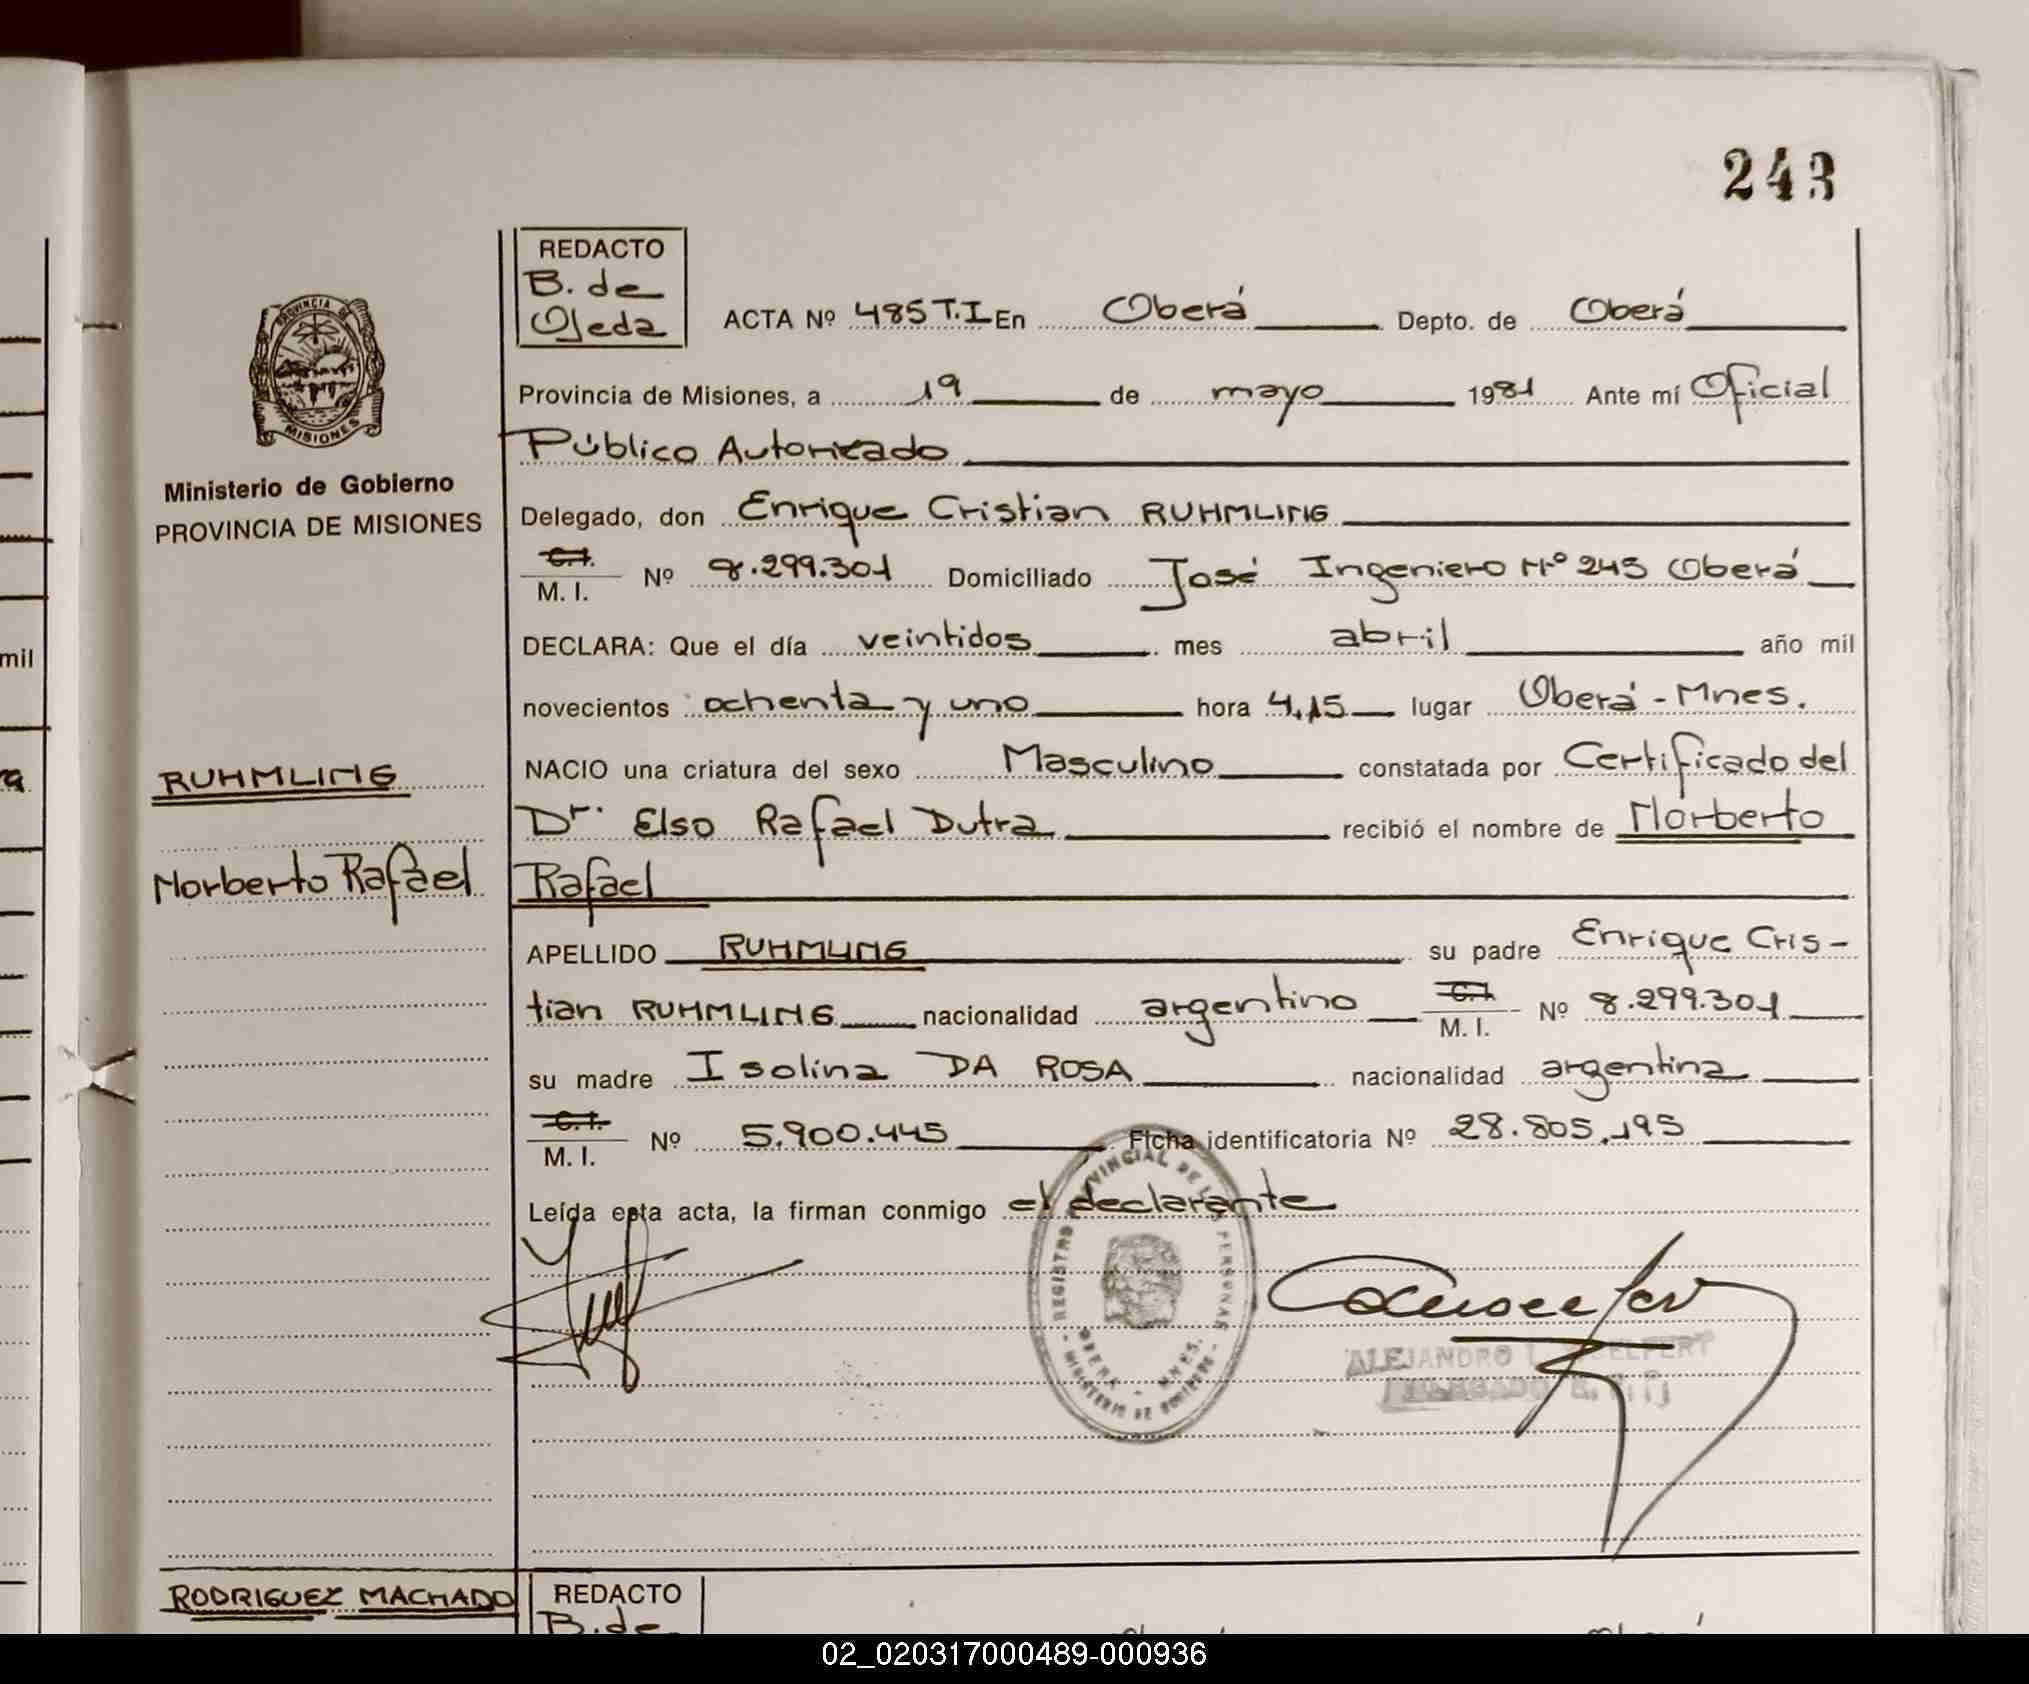 243
REDACTO
B. de
Ojeda
ACTA Nº 485 T.I En Oberá Depto. de Oberá
PROVINCIA DE
MISIONES
Provincia de Misiones, a 19 de mayo 1981 Ante mí Oficial
Público Autorizado
Ministerio de Gobierno
PROVINCIA DE MISIONES
Delegado, don Enrique Cristian RUHMLING
C.I.
M. I. Nº 8.299.301 Domiciliado José Ingeniero Nº 245 Oberá
mil
DECLARA: Que el día veintidos mes abril año mil
novecientos ochenta y uno hora 4,15 lugar Oberá - Mnes.
RUHMLING
NACIO una criatura del sexo Masculino constatada por Certificado del
Dr. Elso Rafael Dutra recibió el nombre de Norberto
Norberto Rafael
Rafael
APELLIDO RUHMLING su padre Enrique Cris-
tian RUHMLING nacionalidad argentino C.I. M. I. Nº 8.299.301
su madre Isolina DA ROSA nacionalidad argentina
C.I.
M. I. Nº 5.900.445 Ficha identificatoria Nº 28.805.195
Leída esta acta, la firman conmigo el declarante
REGISTRO PROVINCIAL DE LAS PERSONAS
OBERA - MNES.
MINISTERIO DE GOBIERNO
ALEJANDRO
DELEGADO
RODRIGUEZ MACHADO
REDACTO
B. de
02_020317000489-000936